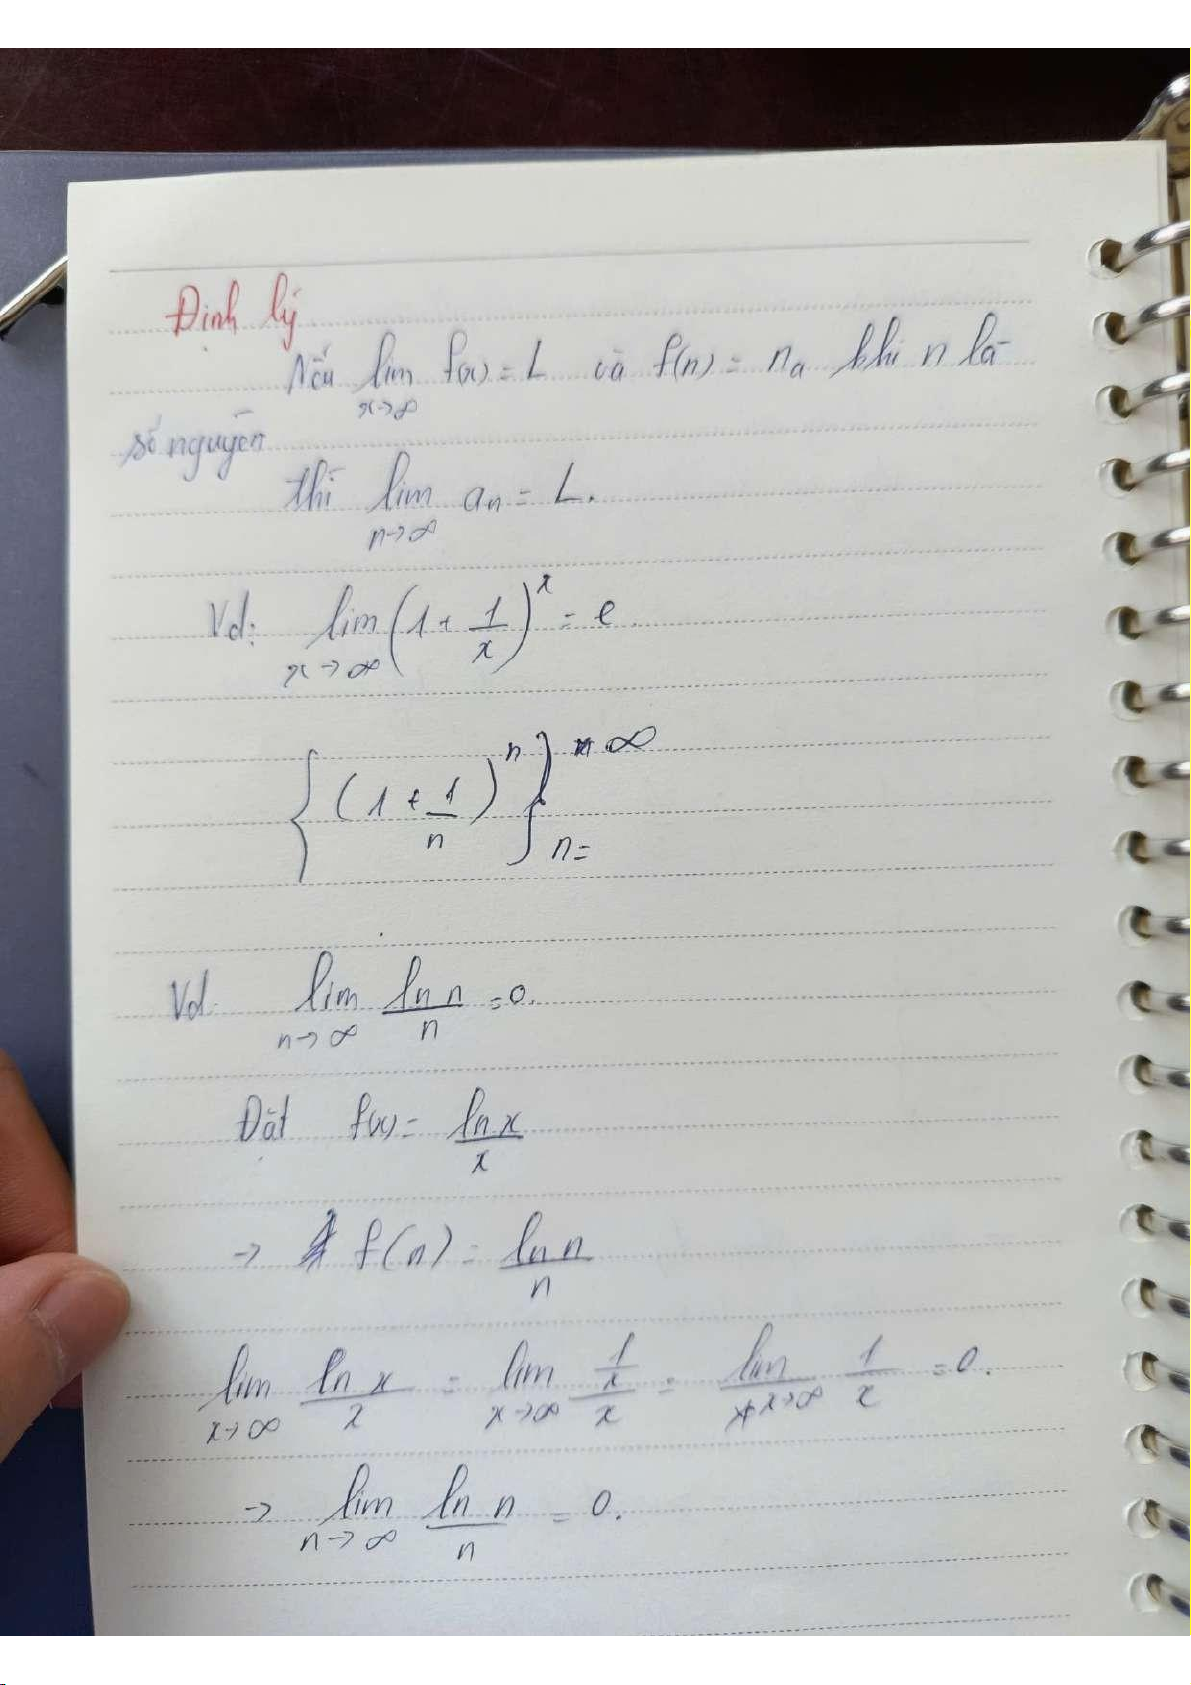 Định lý
Nếu lim x→∞ f(x) = L và f(n) = nₐ khi n là
số nguyên
thì lim n→∞ aₙ = L.
Vd: lim x→∞ (1 + 1/x)^x = e.
{(1 + 1/n)^n}^∞ n=
Vd lim n→∞ ln n/n = 0.
Đặt f(x) = ln x/x
→ f(n) = ln n/n
lim x→∞ ln x/x = lim x→∞ (1/x)/x = lim x→∞ 1/x = 0.
→ lim n→∞ ln n/n = 0.